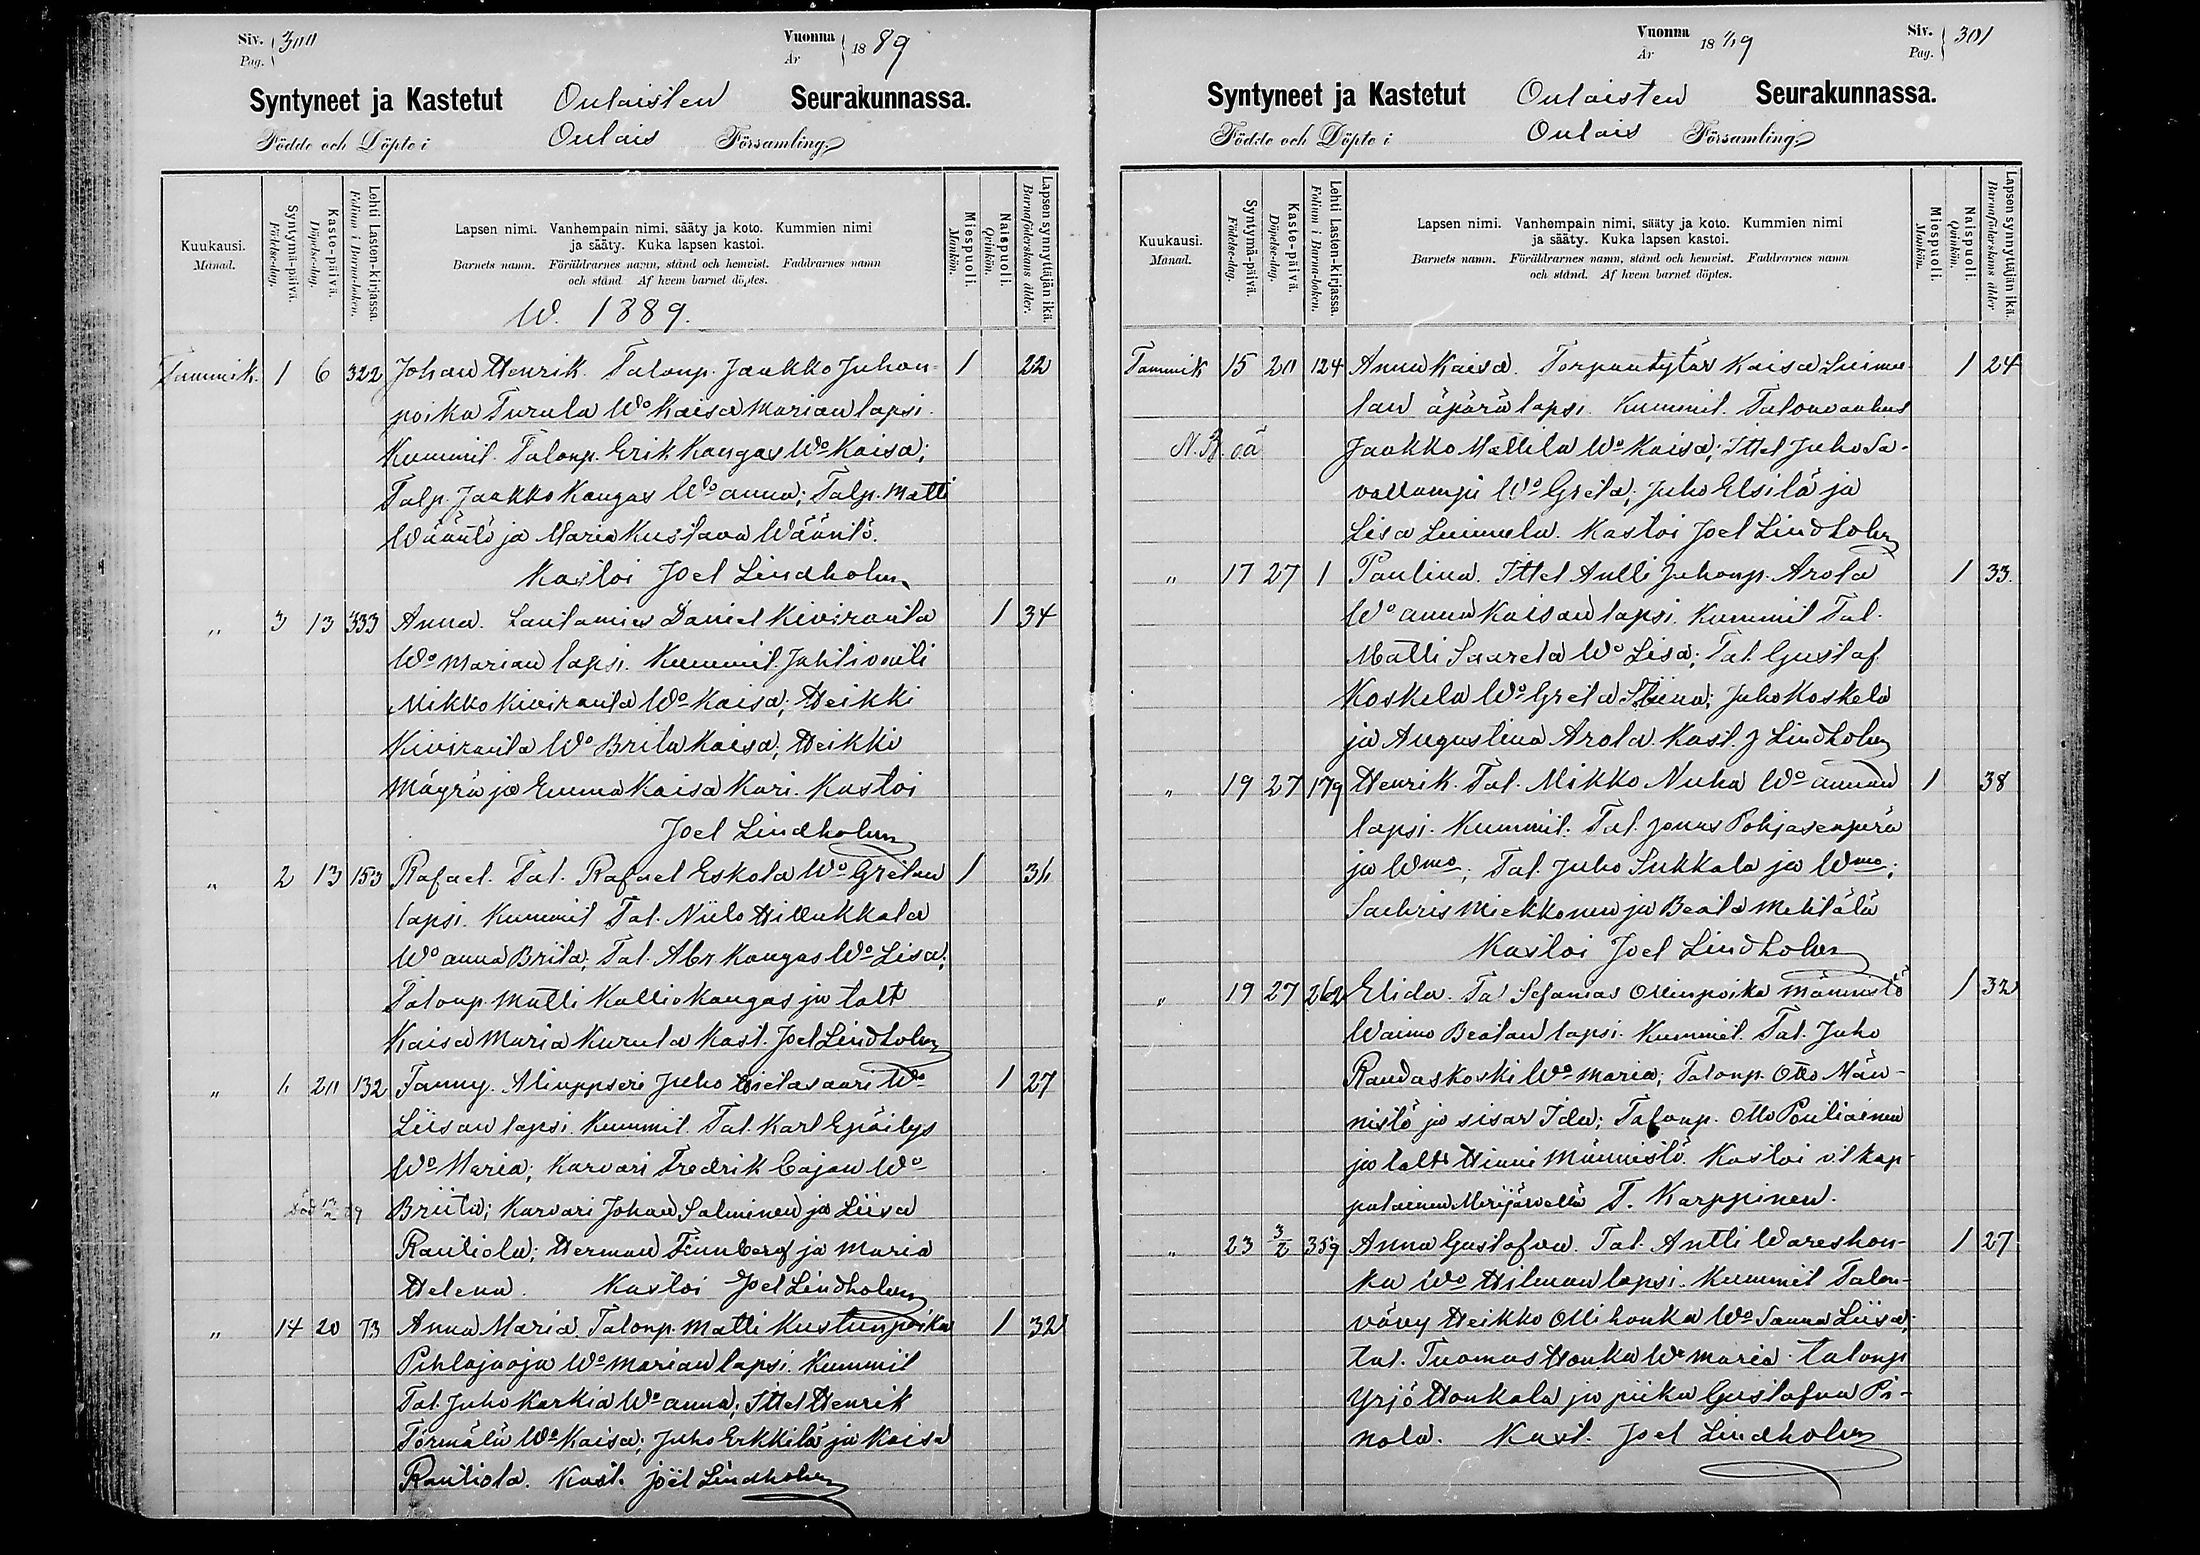 Siv. 300
Pag.
Vuonna 1889
År
Syntyneet ja Kastetut Oulaisten Seurakunnassa.
Födde och Döpte i Oulais Församling.
Kuukausi.
Månad.
Syntymä-päivä.
Födelse-dag.
Kaste-päivä.
Döpelse-dag.
Lehti Lasten-kirjassa.
Folium i Barna-boken.
Lapsen nimi. Vanhempain nimi, sääty ja koto. Kummien nimi
ja sääty. Kuka lapsen kastoi.
Barnets namn. Föräldrarnes namn, stånd och hemvist. Faddrarnes namn
och stånd Af hvem barnet döptes.
Miespuoli.
Mankön.
Naispuoli.
Qvinkön.
Lapsen synnyttäjän ikä.
Barnaföderskans ålder.
W. 1889.
Tammik. 1 6 322 Johan Henrik. Talonp. Jaakko Juhon- 1 22
poika Turula Wo Kaisa Marian lapsi.
Kummit. Talonp. Erik Kangas Wo Kaisa;
Talp. Jaakko Kangas Wo Anna; Talp. Matti
Wääntö ja Maria Kustava Wääntö.
Kastoi Joel Lindholm
" 3 13 333 Anna. Lautamies Daniel Kiviranta 1 34
Wo Marian lapsi. Kummit. Juhtivouti
Mikko Kiviranta Wo Kaisa; Heikki
Kiviranta Wo Brita Kaisa; Heikki
Mäyrä ja Emma Kaisa Kari. Kastoi
Joel Lindholm
" 2 13 153 Rafael. Tal. Rafael Eskola Wo Gretan 1 36
lapsi. Kummit Tal. Niilo Hillukkala
Wo Anna Brita; Tal. Abr. Kangas Wo Lisa;
Talonp. Matti Kalliokangas ja talt
Kaisa Maria Kurula Kast. Joel Lindholm
" 6 20 132 Fanny. Aliuppseri Juho Hietasaari Wo 1 27
Liisan lapsi. Kummit. Tal. Karl Epäilys
Wo Maria; Karvari Fredrik Cajan Wo
Briita; Karvari Johan Salminen ja Liisa
Rautiola; Herman Funberg ja Maria
Helena. Kastoi Joel Lindholm
" 14 20 73 Anna Maria. Talonp. Matti Kustunpoika 1 32
Pihlajaoja Wo Marian lapsi. Kummit
Tal. Juho Karkia Wo Anna; Ittel Henrik
Törmälä Wo Kaisa; Juho Erkkilä ja Kaisa
Rautiola. Kast. Joel Lindholm
Vuonna 1889
År
Siv. 301
Pag.
Syntyneet ja Kastetut Oulaisten Seurakunnassa.
Födde och Döpte i Oulais Församling.
Kuukausi.
Månad.
Syntymä-päivä.
Födelse-dag.
Kaste-päivä.
Döpelse-dag.
Lehti Lasten-kirjassa.
Folium i Barna-boken.
Lapsen nimi. Vanhempain nimi, sääty ja koto. Kummien nimi
ja sääty. Kuka lapsen kastoi.
Barnets namn. Föräldrarnes namn, stånd och hemvist. Faddrarnes namn
och stånd. Af hvem barnet döptes.
Miespuoli.
Mankön.
Naispuoli.
Qvinkön.
Lapsen synnyttäjän ikä.
Barnaföderskans ålder
Tammik 15 20 124 Anna Kaisa. Torpantytär Kaisa Luimu- 1 24
lan äpärä lapsi. Kummit. Talonvanhus
N.B. oä Jaakko Mattila Wo Kaisa; Ittel Juho Sa-
vallampi Wo Greta; Juho Elsilä ja
Lisa Luimula. Kastoi Joel Lindholm
" 17 27 1 Paulina. Ittel Antti Juhonp. Arola 1 33.
Wo Anna Kaisan lapsi. Kummit Tal.
Matti Saarela Wo Lisa; Tal. Gustaf
Koskela Wo Greta Stina; Juho Koskela
ja Augustina Arola. Kast. J Lindholm
" 19 27 179 Henrik. Tal. Mikko Nuha Wo Annan 1 38
lapsi. Kummit. Tal. Jonas Pohjasenperä
ja Wmo; Tal. Juho Sukkala ja Wmo;
Sachris Miekkonen ja Beata Mehtälä
Kastoi Joel Lindholm
" 19 27 262 Elida. Tal Sefanias Ollinpoika Männistö 1 32
Waimo Beatan lapsi. Kummit. Tal. Juho
Raudaskoski Wo Maria; Talonp. Otto Män-
nistö ja sisar Ida; Talonp. Otto Pouliainen
ja talt Hinni Männistö. Kastoi v.t kap-
palainen Merijärvellä T. Karppinen.
" 23 3/2 359 Anna Gustafva. Tal. Antti Wareshon- 1 27
ka Wo Hilman lapsi. Kummit Talon-
vävy Heikko Ollihonka Wo Sanna Liisa;
tal. Tuomas Honka Wo Maria talonp
Yrjö Honkala ja piika Gustafva Pi-
nola. Kast. Joel Lindholm